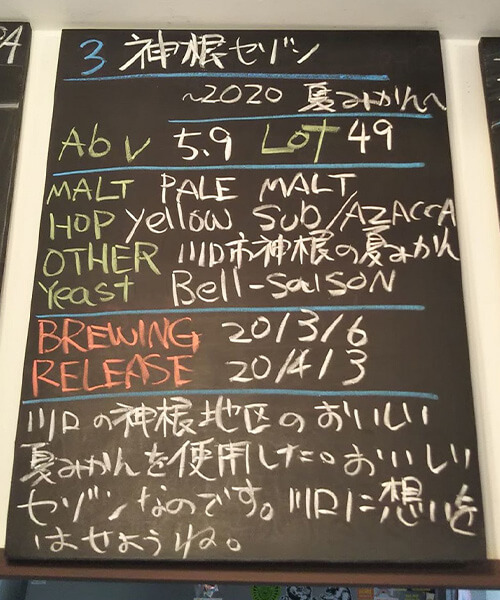 3 神根セゾン
~2020 夏みかん~
Abv 5.9 LoT 49
MALT PALE MALT
HOP Yellow Sub/AZACCA
OTHER 川口市神根の夏みかん
Yeast Bell-SaiSON
BREWING 20/3/6
RELEASE 20/4/3
川口の神根地区のおいしい
夏みかんを使用した。おいしい
セゾンなのです。川口に想いを
はせようね。